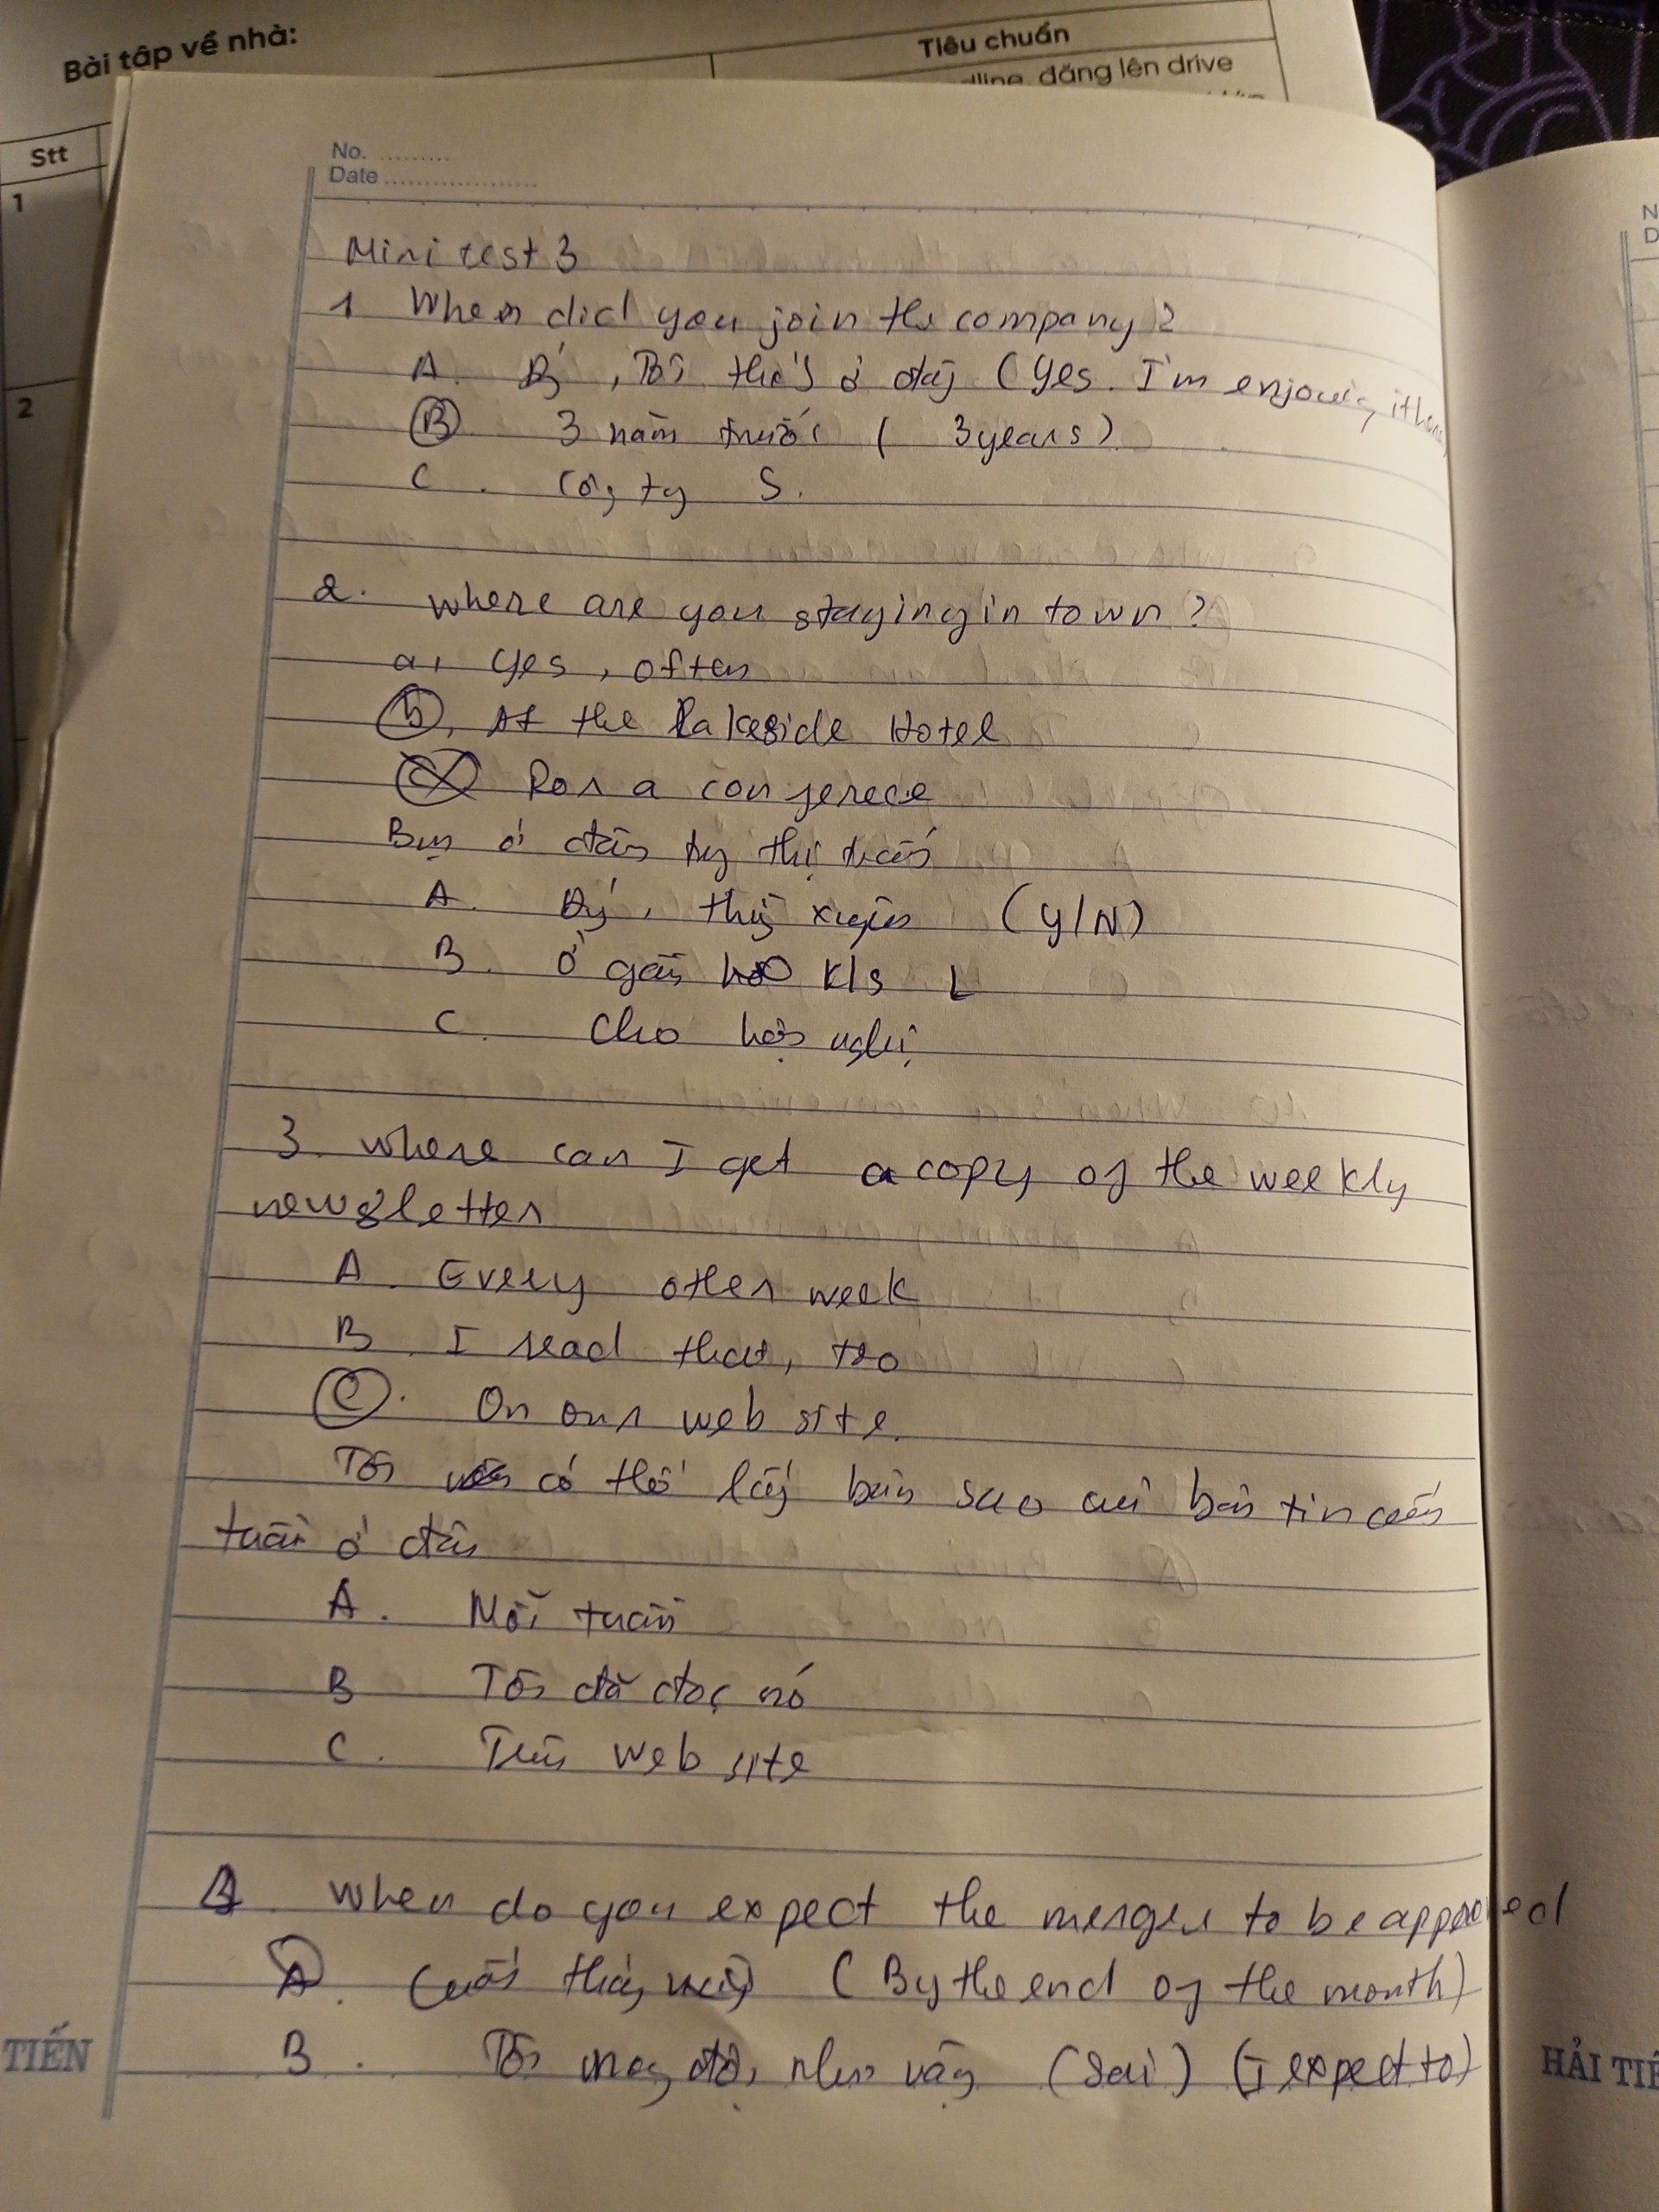 Bài tập về nhà:
Tiêu chuẩn
dline, đăng lên drive
Stt
1
2
No. ..........
Date ....................
Mini test 3
1 When did you join the company?
A. Đ', Tôi thấy ở đây (Yes. I'm enjoying it here
B 3 năm trước ( 3years)
C. Công ty S.
2. where are you staying in town?
a, Yes, often
b, At the Lakeside Hotel
c For a conferece
Bạn ở đâu tại thị trấn
A. Đý, thg xuyên (Y/N)
B. Ở gần hồ K/s L
C. Cho hội nghị
3. where can I get a copy of the weekly
newsletter
A. Every other week
B I read that, too
C. On our web site.
Tôi có thể lấy bản sao của bản tin cuối
tuần ở đâu
A. Mỗi tuần
B Tôi đã đọc nó
C. Trên web site
4. When do you expect the merger to be approved
A. Cuối tháng này (By the end of the month)
B. Tôi mong đợi như vậy (Sai) (I expect to)
TIẾN
HẢI TIẾ
N
D